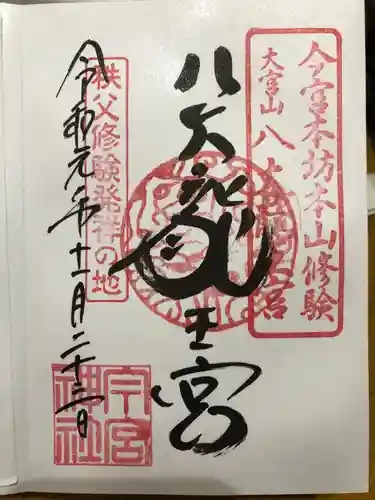 今宮本坊本山修験
大宮山 八大龍王宮
八大龍王宮
秩父修験発祥の地
令和元年十一月二十三日
今宮神社